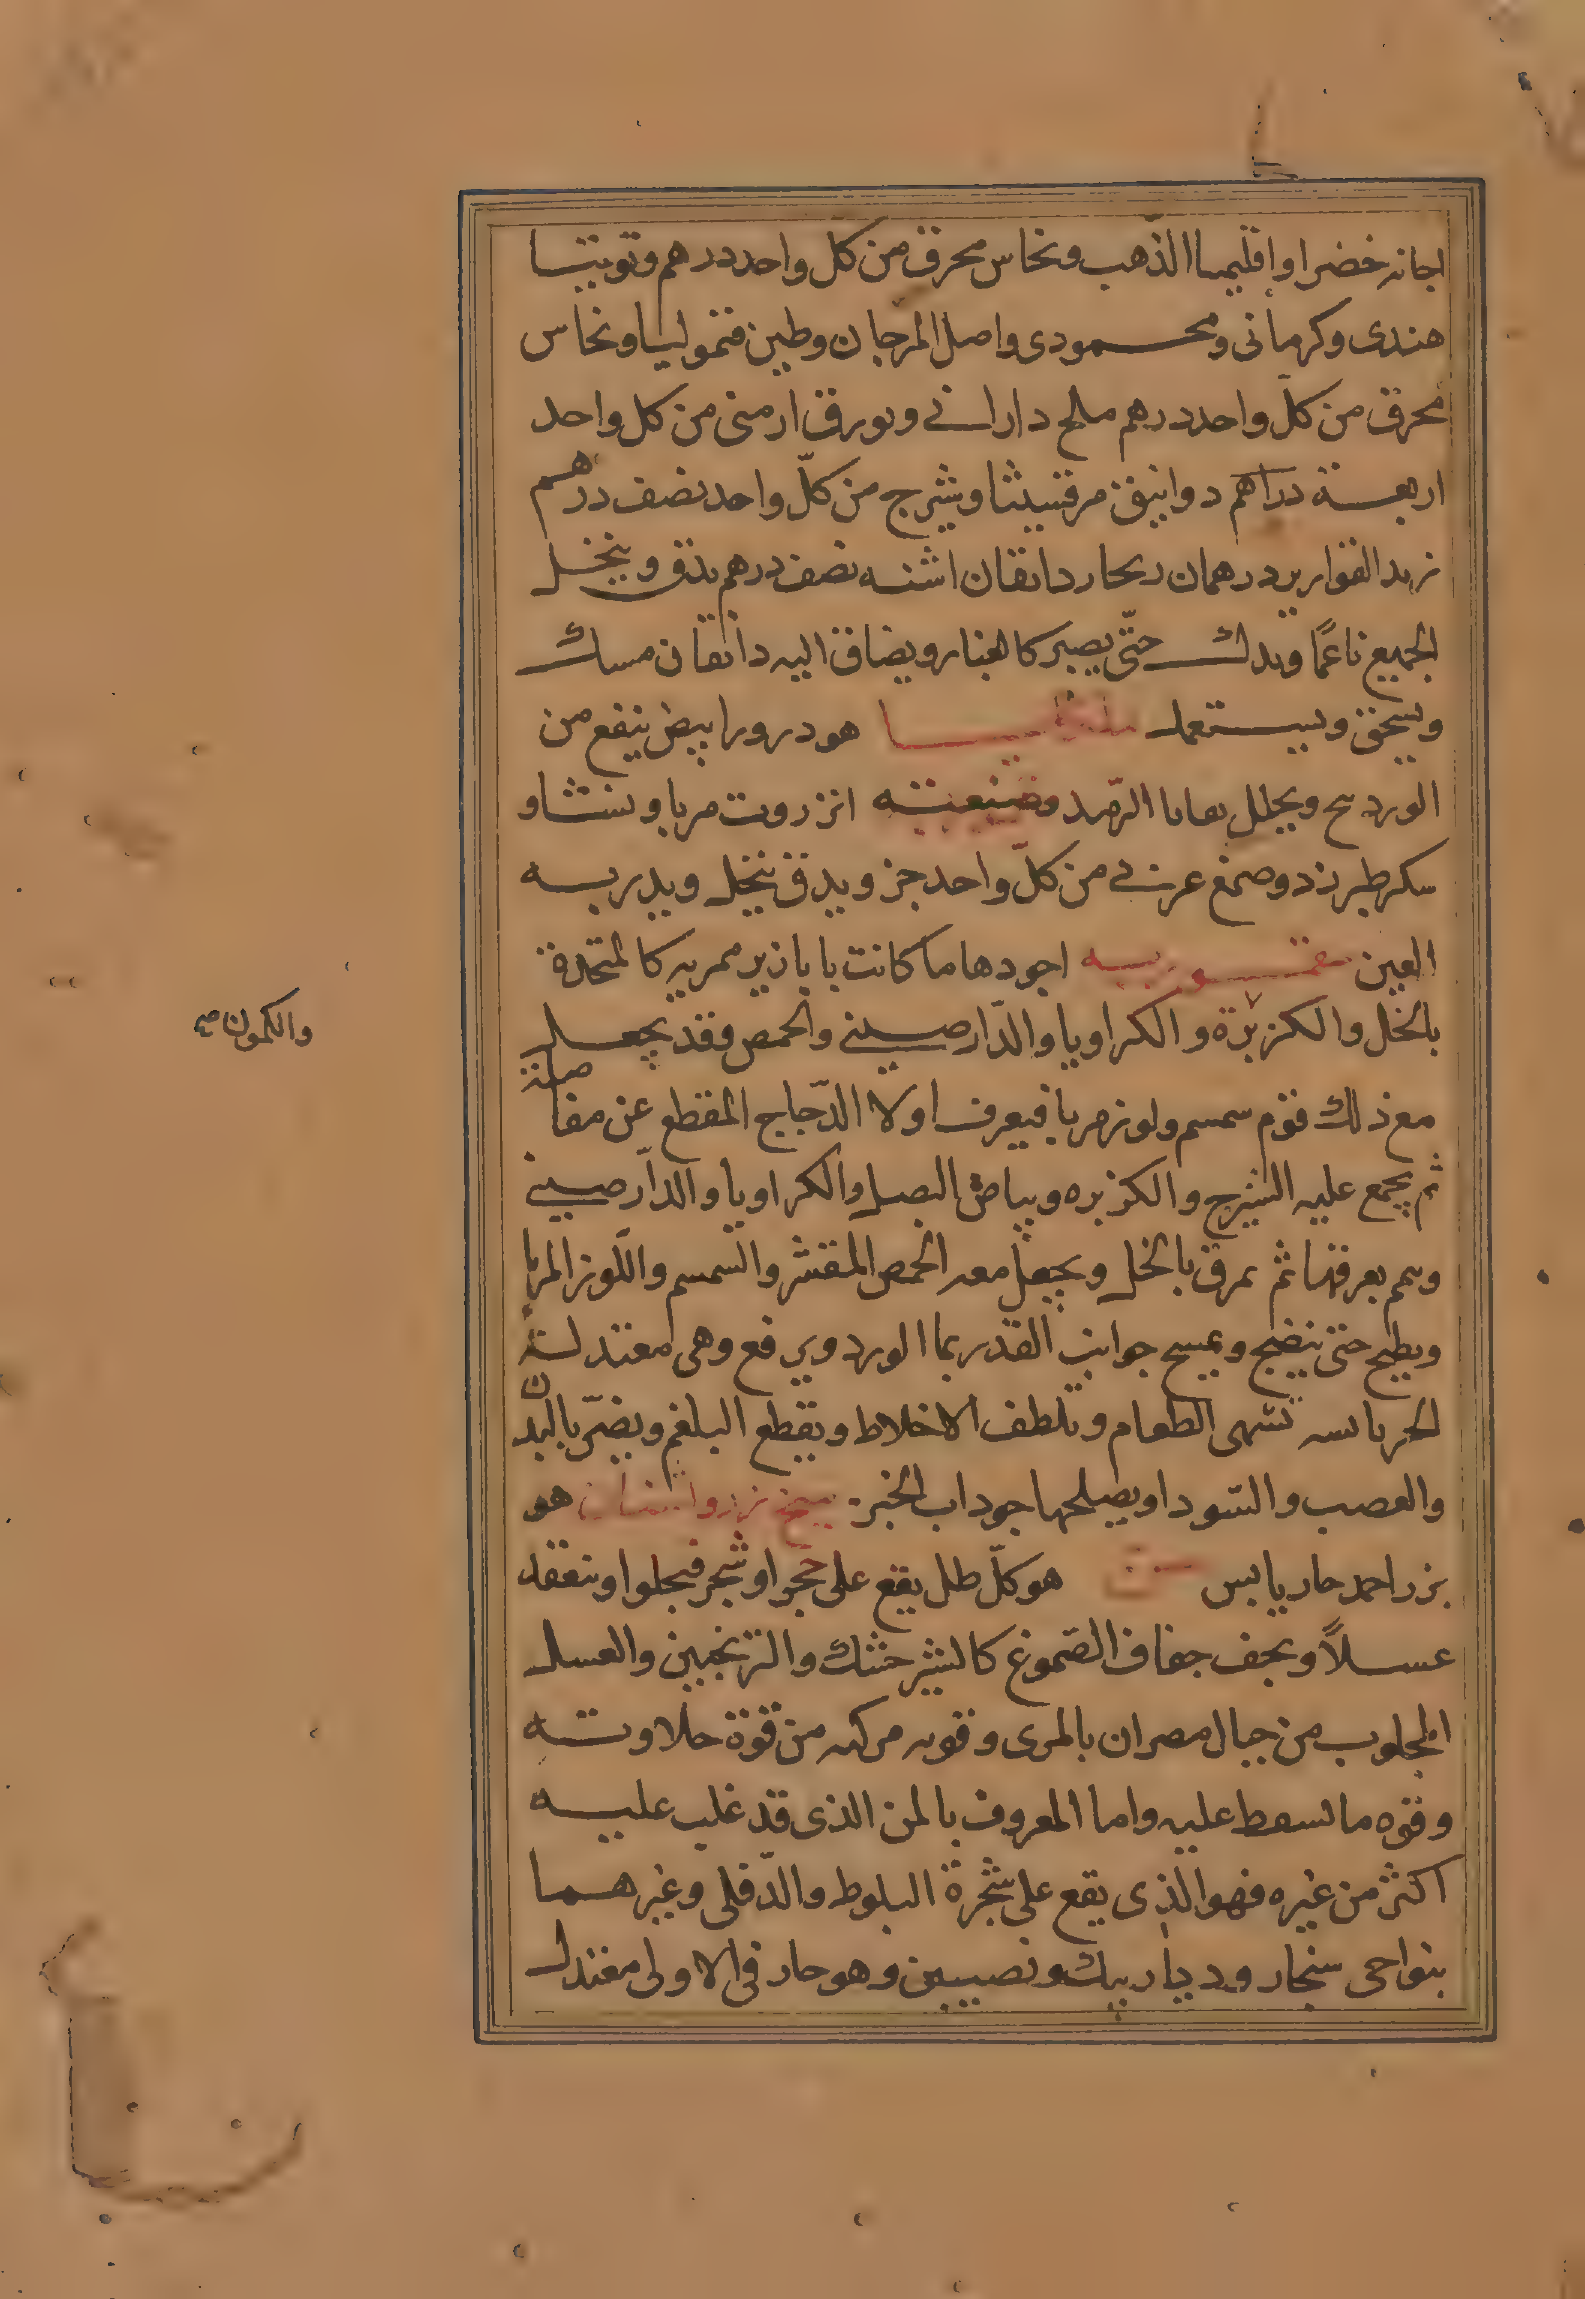 اجانه خضرا واقليميا الذّهب ونحاس محرق من كلّ واحد درهم وتوتيا
هندى وكرمانى ومحمودى واصل المرجان وطين قيموليا ونحاس
محرق من كلّ واحد درهم ملح دارانى وبورق ارمنى من كل واحد
اربعة دراهم دوانيق مرقشيثا وشيرج من كلّ واحد نصف درهم
زبد القوارير درهمان دانقان اشنه نصف درهم يدق وينخل
الجميع ناعمًا ويدلك حتّى يصير كالغبار ويضاف اليه دانقان مسك
ويسحق ويستعمل هو درور ابيض ينفع من
الوردينج ويحلل بقايا الرّمد وصنعته انزروت مربا ونشا و
سكر طبرزد وصمغ عربى من كلّ واحد جزو يدق ينخل ويدر به
العين اجودها ما كانت بابازير ممريه كالمتخدة
بالخل والكزبرة والكراويا والدّارصينى والحمص وقد يجعل
والكمون صح
مع ذلك قوم سمسم ولوز مربا فيعرق اولا الدّجاج المقطع عن مفاصلة
ثم يجمع عليه الشيرج والكزبره وبياض البصل والكراويا والدّارصينى
وسم بعرقها ثم يمرق بالخل ويجعل معه الحمص المقشر والسمسم واللّوز المربا
ويطبخ حتى ينضج ويمسح جوانب القدر بما الورد ويرفع وهى معتدلة
الحر يابسه تشهى الطعام وتلطف الاخلاط ويقطع البلغم ويضرّ بالبدن
والعصب والسّودا ويصلحها جوداب الخبز هو
بزر احمد حار يابس هو كلّ طل يقع على حجر او شجر فيحلوا وينعقد
عسلاً ويجف جفاف الصّموغ كالشيرخشك والترنجبين والعسل
المجلوب من جبال مصران بالمرى وقوته مركبه من قوة حلاوته
وقوه ما يسقط عليه واما المعروف بالمن الذى قد غلب عليه
اكثر من غيره فهو الذى يقع على شجرة البلوط والدّفلى وغيرهما
بنواحى سنجار وديار بيك ونصيبين وهو حار فى الاولى معتدل